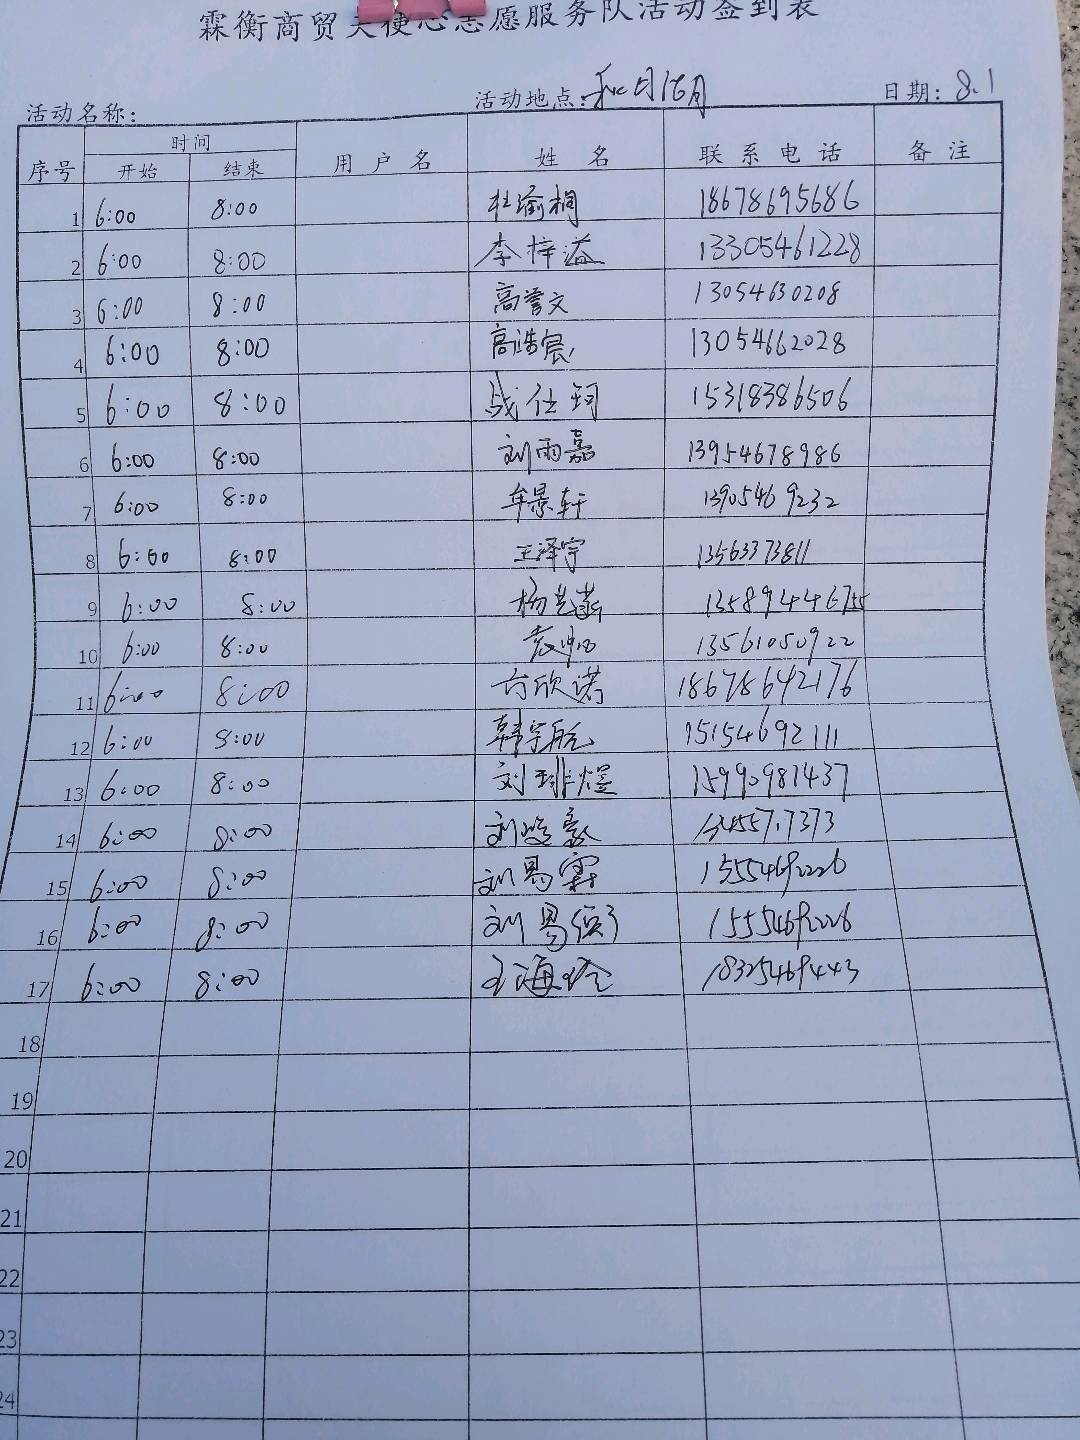 霖衡商贸天使心志愿服务队活动签到表
活动名称: 活动地点: 日期: 8.1
序号 时间 用户名 姓名 联系电话 备注
开始 结束
1 6:00 8:00 杜瑜桐 18678695686
2 6:00 8:00 李梓溢 13305461228
3 6:00 8:00 高誉文 13054630208
4 6:00 8:00 高浩宸 13054662028
5 6:00 8:00 战仕珂 15318386506
6 6:00 8:00 刘雨嘉 13954678986
7 6:00 8:00 牟景轩 13905469232
8 6:00 8:00 王泽宇 13563373811
9 6:00 8:00 13589444675
10 6:00 8:00 13561050922
11 6:00 8:00 18678642176
12 6:00 8:00 韩宇航 15154692111
13 6:00 8:00 刘琲煜 15990981437
14 6:00 8:00
15 6:00 8:00 刘易霖 15554692226
16 6:00 8:00 15554692226
17 6:00 8:00 18325469443
18
19
20
21
22
23
24